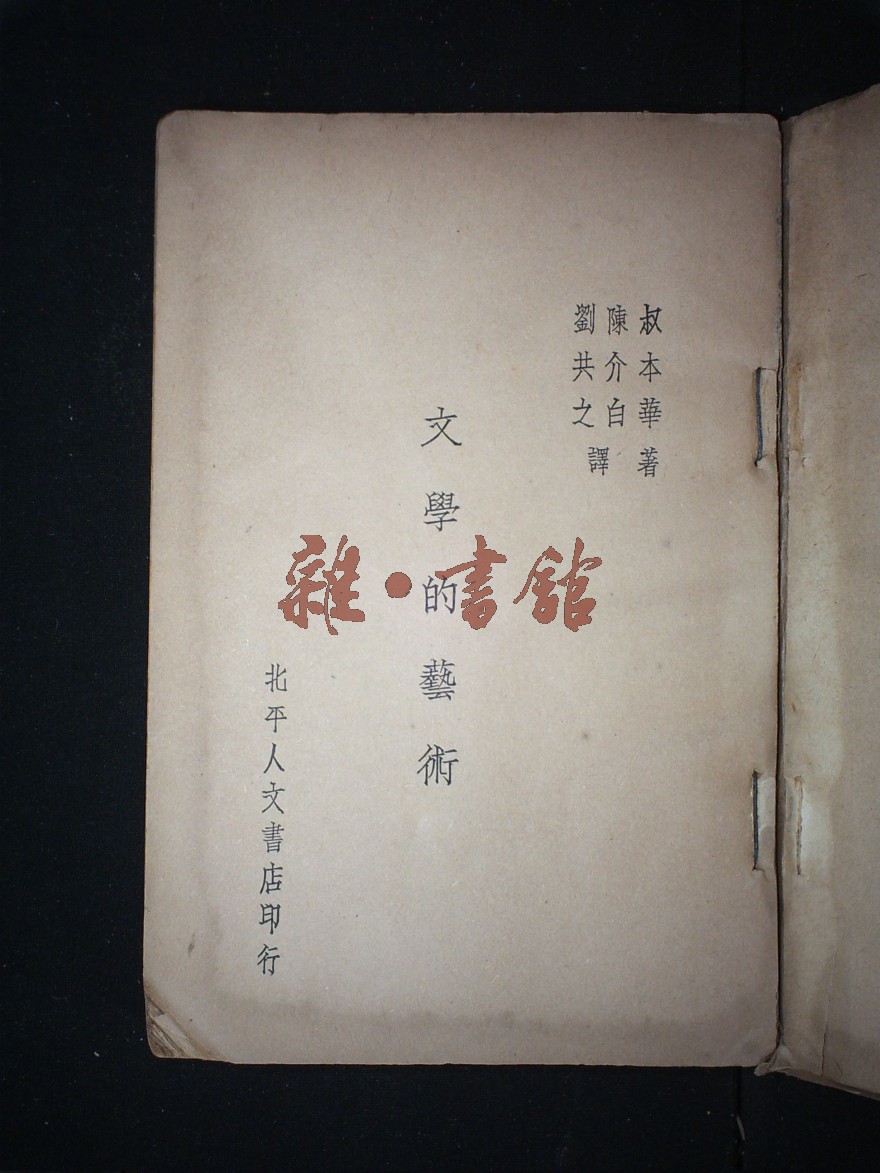 叔本華著
陳介白
劉共之
譯
文學的藝術
雜·書館
北平人文書店印行